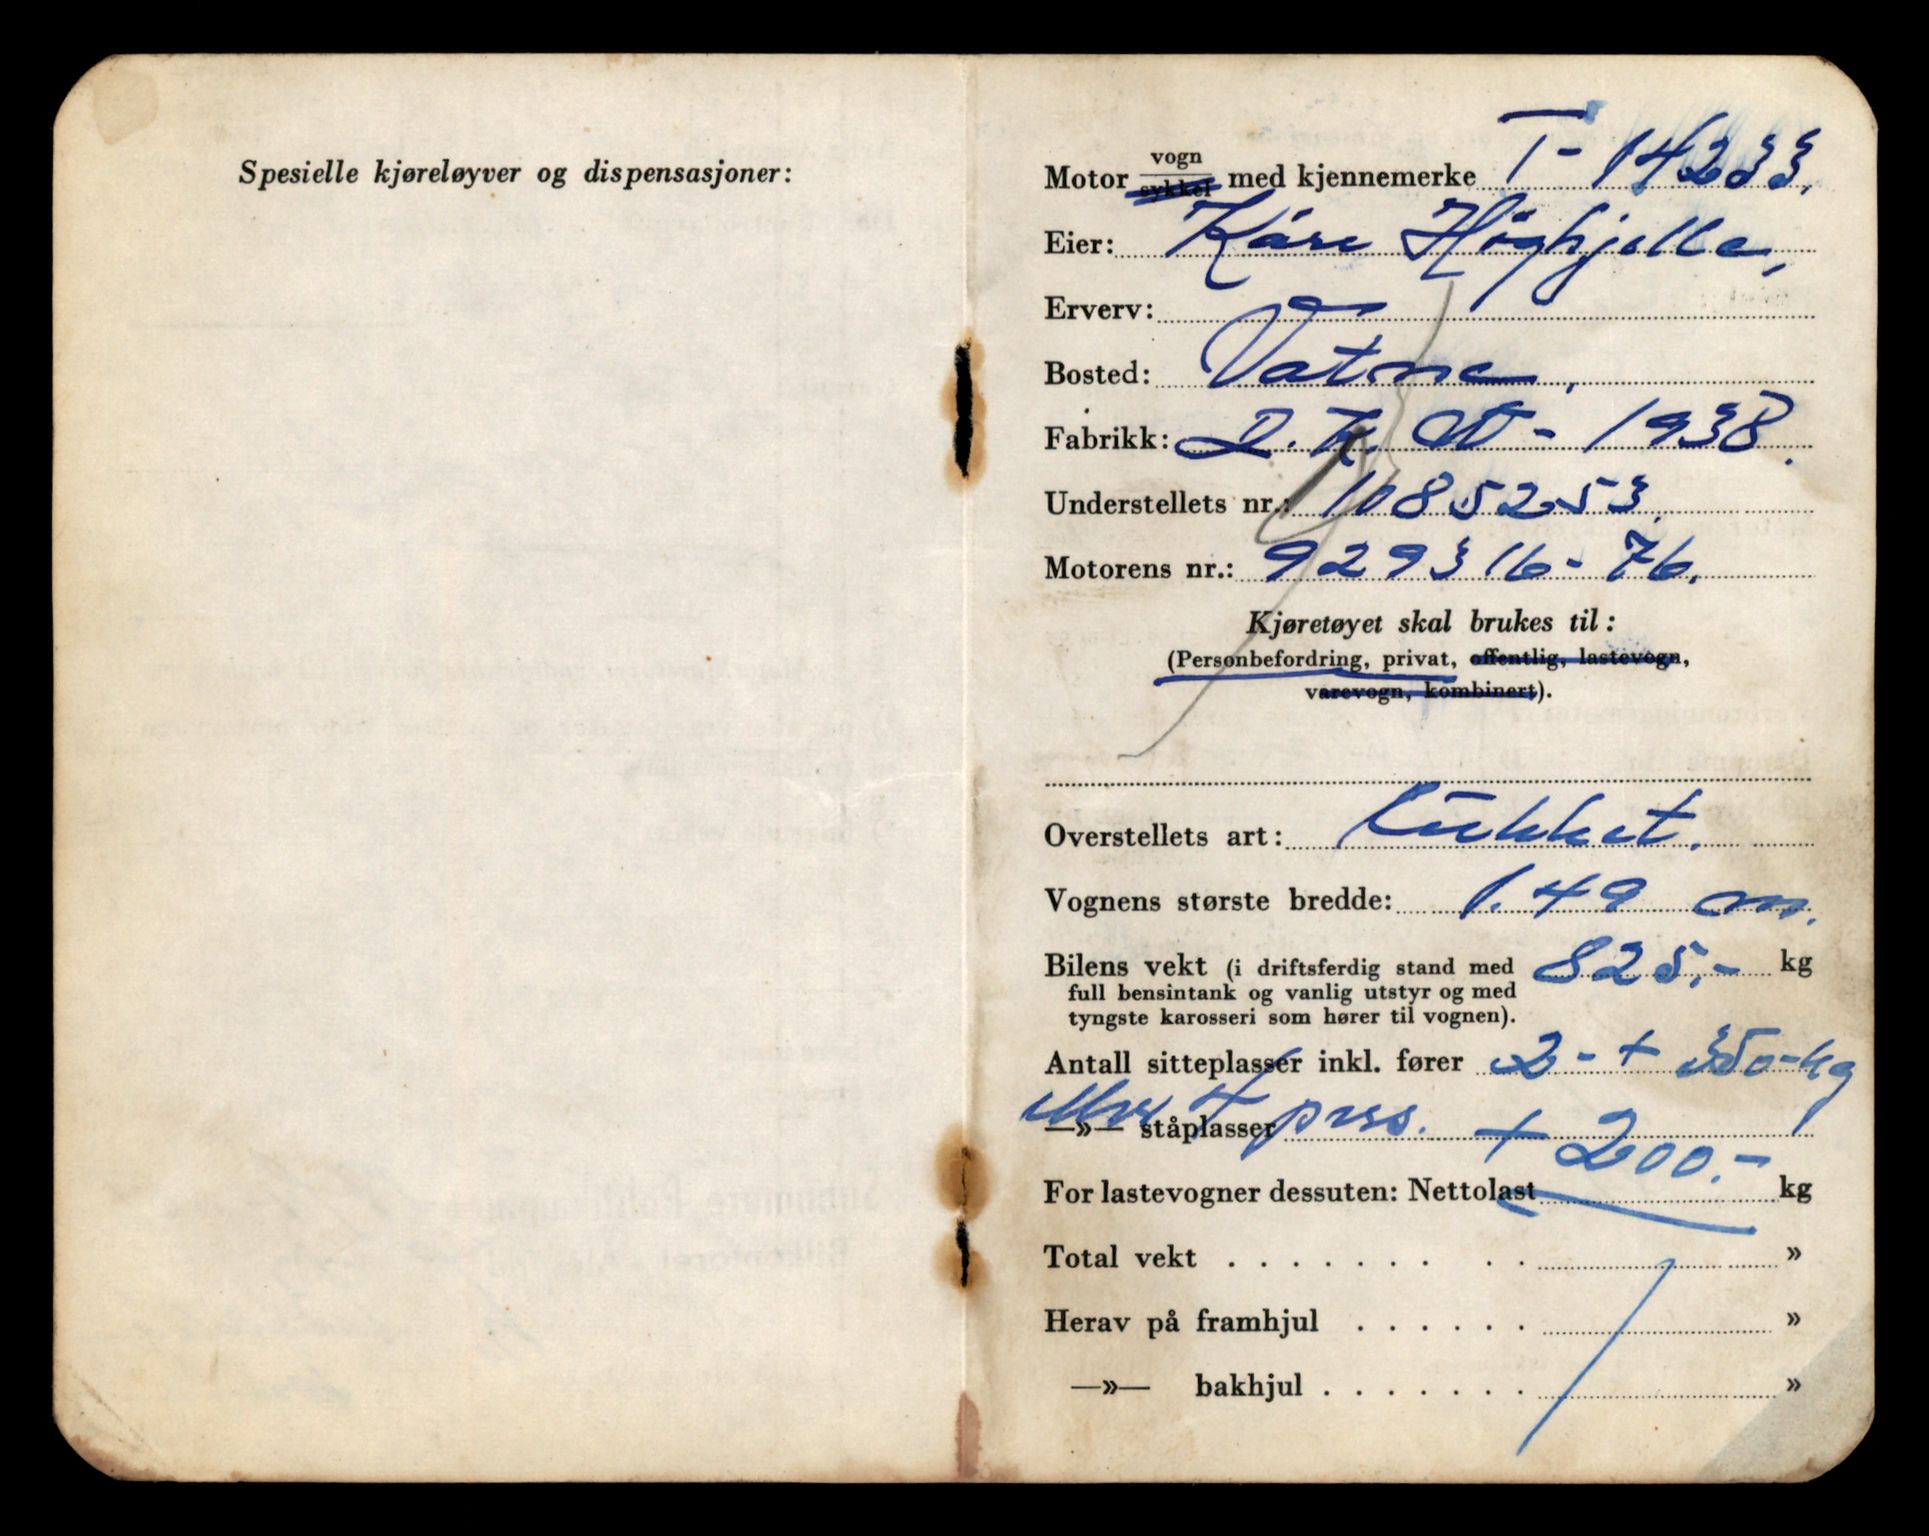 Spesielle kjøreløyver og dispensasjoner:
Motor vogn/sykkel med kjennemerke T - 14233.
Eier: Kåre Höghjelle,
Erverv:
Bosted: Vatne,
Fabrikk: D.K.W - 1938.
Understellets nr.: 1085253.
Motorens nr.: 929316-76.
Kjøretøyet skal brukes til:
(Personbefordring, privat, offentlig, lastevogn,
varevogn, kombinert).
Overstellets art: Lukket.
Vognens største bredde: 1.49 m.
Bilens vekt (i driftsferdig stand med 825.- kg
full bensintank og vanlig utstyr og med
tyngste karosseri som hører til vognen).
Antall sitteplasser inkl. fører 2 - + 350-kg
—»— ståplasser 4 pers. + 200.-
For lastevogner dessuten: Nettolast kg
Total vekt . . . . . . . . . »
Herav på framhjul . . . . . . »
—»— bakhjul . . . . . . . »